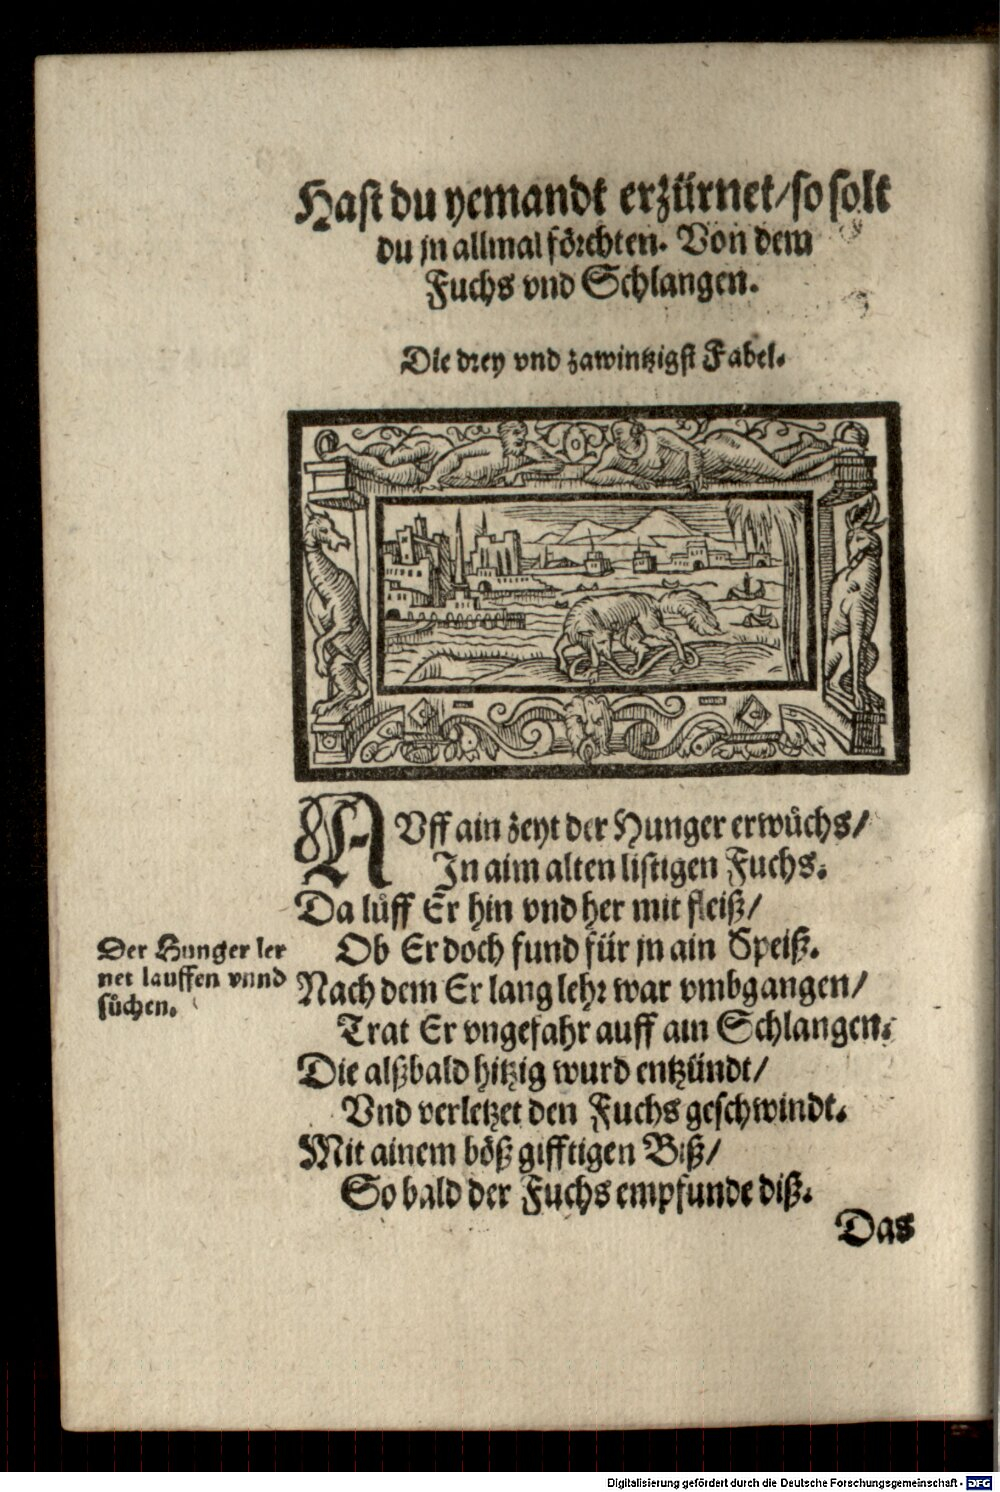 Hast du yemandt erzürnet/so solt
du jn allmal förchten. Von dem
Fuchs vnd Schlangen.
Die drey vnd zawintzigst Fabel.
AVff ain zeyt der Hunger erwůchs/
In aim alten listigen Fuchs.
Da lůff Er hin vnd her mit fleiß/
Ob Er doch fund für jn ain Speiß.
Der Hunger ler
net lauffen vnnd
sůchen.
Nach dem Er lang lehr war vmbgangen/
Trat Er vngefahr auff ain Schlangen.
Die alßbald hitzig wurd entzündt/
Vnd verletzet den Fuchs geschwindt.
Mit ainem böß gifftigen Biß/
So bald der Fuchs empfunde diß.
Das
Digitalisierung gefördert durch die Deutsche Forschungsgemeinschaft - DFG